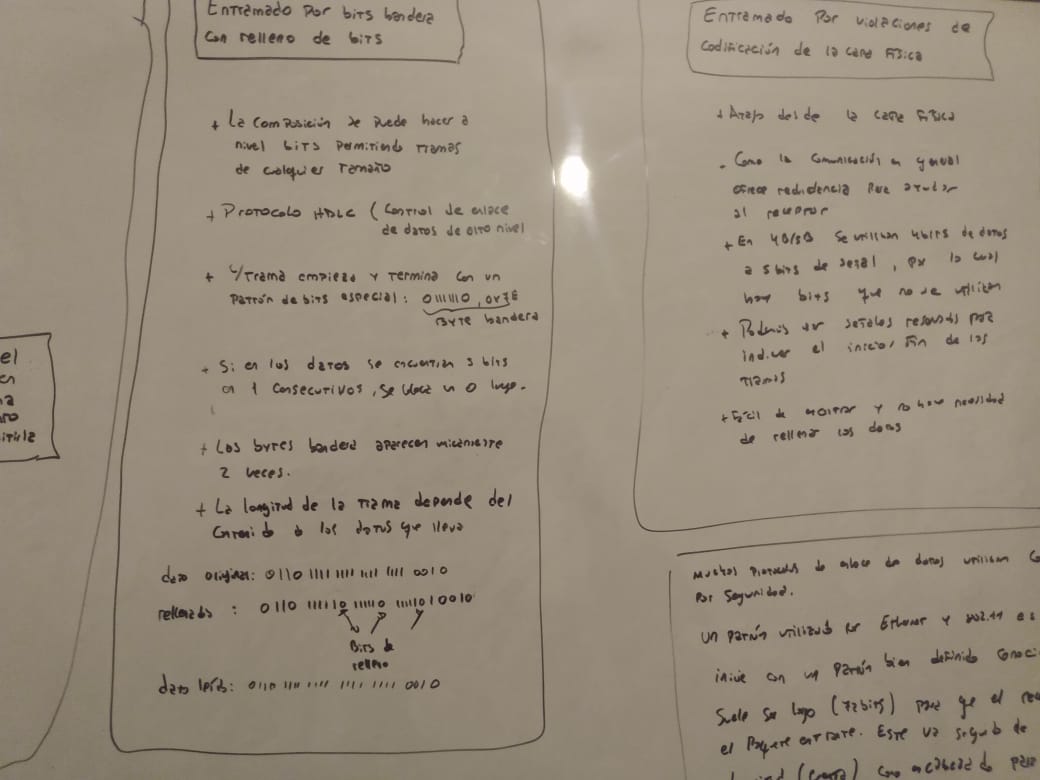 Entramado Por bits bandera
Con relleno de bits
+ La composición se puede hacer a
nivel bits Permitiendo Tramas
de cualquier Tamaño
+ Protocolo HDLC (Control de enlace
de datos de alto nivel
+ c/Trama empieza y termina con un
Patrón de bits especial: 01111110, 0x7E
Byte bandera
+ Si en los datos se encuentran 5 bits
en 1 consecutivos, se un 0 luego.
+ Los bytes bandera aparecen únicamente
2 veces.
+ La longitud de la Trama depende del
los datos que lleva
dato original: 0110 1111 1111 1111 1111 0010
rellenado : 0110 111110 111110 0010
Bits de
relleno
dato leído: 0110 1111 1111 1111 1111 0010
Entramado Por violaciones de
Codificación de la capa Física
+ la capa Física
- Como la comunicación en general
ofrece redundancia Para ayudar
al receptor
+ En 4B/5B Se utilizan 4bits de datos
a 5 bits de señal, por lo cual
hay bits que no se utilizan
+ Podemos señales para
indicar el inicio/fin de las
Tramas
+ Fácil de y no hace necesidad
de rellenar los datos
Muchos Protocolos de enlace de datos utilizan
Por Seguridad.
Un Patrón utilizado por Ethernet y 802.11
inicie con un Patrón bien definido
Suele Ser largo (72bits) para que el
el Paquete entrante. Este va seguido de
el
en